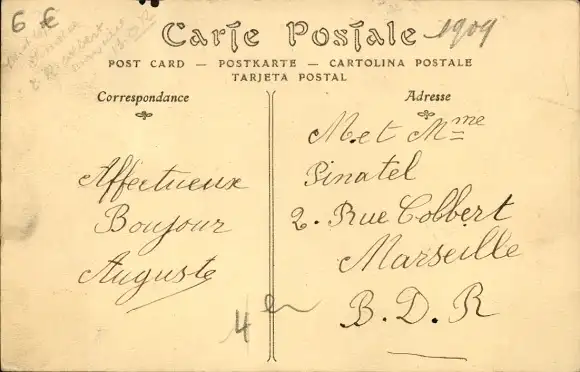 6 €
Carte Postale
1909
POST CARD — POSTKARTE — CARTOLINA POSTALE
TARJETA POSTAL
Correspondance
Affectueux
Boujour
Auguste
4
Adresse
M. et Mme
Pinatel
2. Rue Colbert
Marseille
B. D. R